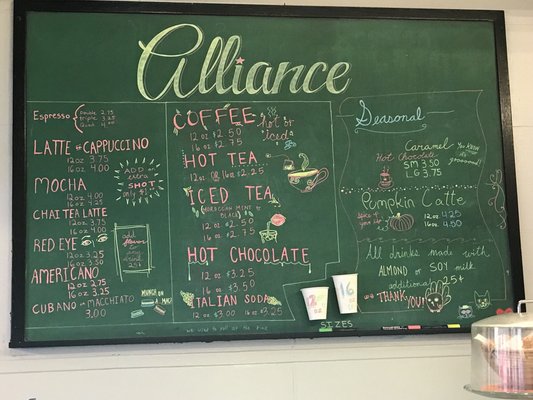 Alliance
Espresso
Double 2.75
Triple 3.25
Quad 4.00
LATTE or CAPPUCCINO
12 oz 3.75
16 oz 4.00
ADD an
extra
SHOT
MOCHA
12 oz 4.00
16 oz 4.25
CHAI TEA LATTE
12 oz 3.75
16 oz 4.00
RED EYE
12 oz 3.25
16 oz 3.50
add
FLAVOR
to any
drink
25¢
AMERICANO
12 oz 2.75
16 oz 3.25
CUBANO or MACCHIATO
3.00
COFFEE Hot or Iced
12 oz $2.50
16 oz $2.75
HOT TEA
12 OR 16 oz $2.25
ICED TEA
(MOROCCAN MINT OR
BLACK)
12 oz $2.50
16 oz $2.75
HOT CHOCOLATE
12 oz $3.25
16 oz $3.50
ITALIAN SODA
12 oz $3.00 16 oz $3.25
12
16
SIZES
Seasonal
Caramel
Hot Chocolate
SM 3.50
LG 3.75
Pumpkin Latte
Spice of
your life
12 oz 4.25
16 oz 4.50
All drinks made with
ALMOND or SOY milk
additional
THANK YOU!